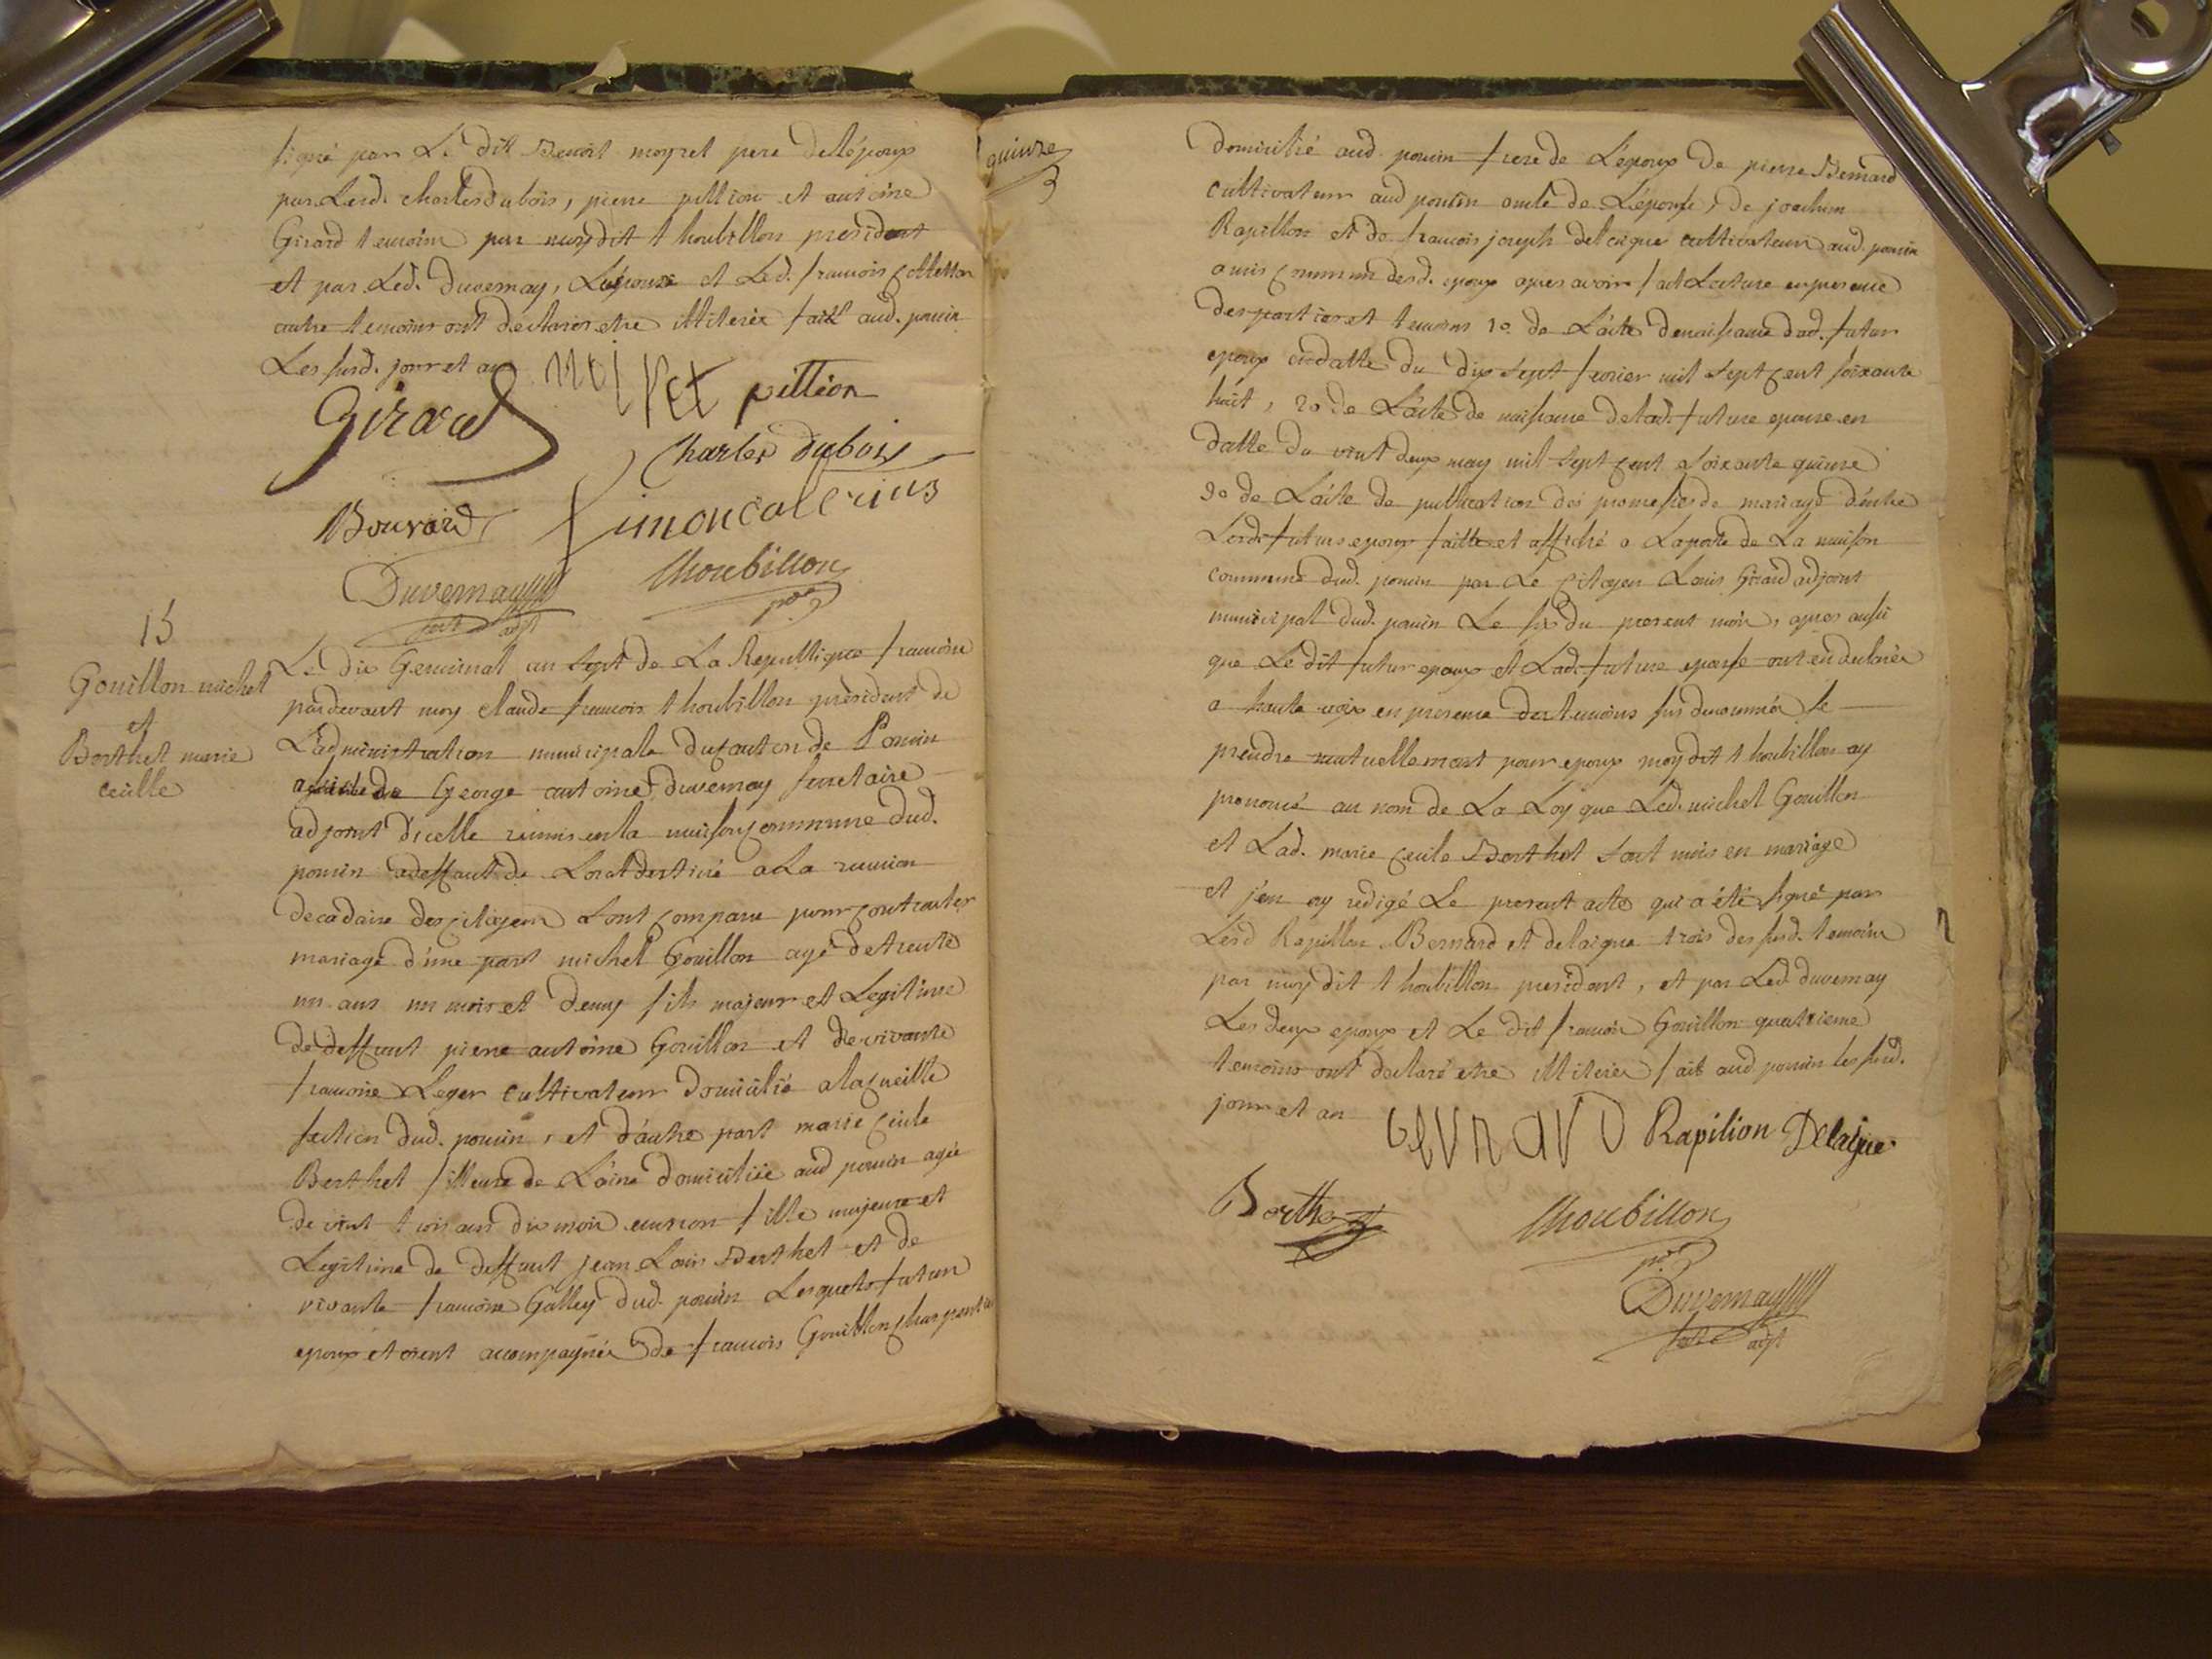 signé par Le dit Benoit moyret pere de l'époux
par Lesd. charles dubois, pierre pillion et antoine
Girard temoins par moy dit thoubillon president
et par Led. Duvernay, L'épouse et Led. francois
autre temoins ont declarés etre illiterés fait aud. poncin
Les susd. jour et an
moiret pillion
Girard
Charles dubois
Bouvard
Duvernay
Thoubillon
pr
sect adjt
15
Gouillon michel
et
Berthet marie
ceille
Le dix Germinal an sept de La Republique francoise
pardevant moy claude francois thoubillon président de
L'administration municipale du canton de Poncin
assisté de George antoine duvernay secretaire
adjoint d'icelle reunis en la maison commune dud.
poncin a deffaut de Local destiné a La reunion
decadaire des citoyens sont comparu pour contracter
mariage d'une part michel Gouillon agé de trente
un ans un mois et demy fils majeur et Legitime
de deffunt pierre antoine Gouillon et de vivante
francoise Leger cultivateur domicilié a la cueille
section dud. poncin, et d'autre part marie cecile
Berthet fileuse de Laine domiciliée aud poncin agée
de vint trois ans dix mois environ fille majeure et
Legitime de deffunt jean Louis Berthet et de
vivante francoise Galley dud. poncin Lesquels futurs
epoux etoient accompagnés de francois Gouillon charpentier
quinze
domicilié aud. poncin frere de L'époux de pierre Bernard
cultivateur aud poncin oncle de L'épouse, de joachim
Rapillon et de francois joseph delaigue cultivateurs aud. poncin
amis commun desd. epoux apres avoir fait Lecture en presence
des parties et temoins 1o. de L'acte de naissance dud. futur
epoux en datte du dix sept fevrier mil sept cent soixante
huit, 2o de L'acte de naissance de lad. future epouse en
datte du vint deux may mil sept cent soixante quinze
3o de L'acte de publication des promesses de mariage d'entre
Lesd. futurs epoux faitte et affiché a La porte de La maison
commune dud. poncin par Le citoyen Louis Girard adjoint
municipal dud. poncin Le six du present mois, apres aussi
que Le dit futur epoux et Lad. future epouse ont eu declarés
a haute voix en presence des temoins sus denommés se
prendre mutuellement pour epoux moy dit thoubillon ay
prononcé au nom de La Loy que Led. michel Gouillon
et Lad. marie cecile Berthet sont unis en mariage
et j'en ay redigé Le present acte qui a été signé par
Lesd Rapillon Bernard et delaigue trois des susd. temoins
par moy dit thoubillon president, et par Led. duvernay
Les deux epoux et Le dit francois Gouillon quatrieme
temoins ont declaré etre illiterés fait aud poncin les susd.
jour et an
bernard Rapilion Delaigue
Berthet
Thoubillon
pr
Duvernay
sect adjt